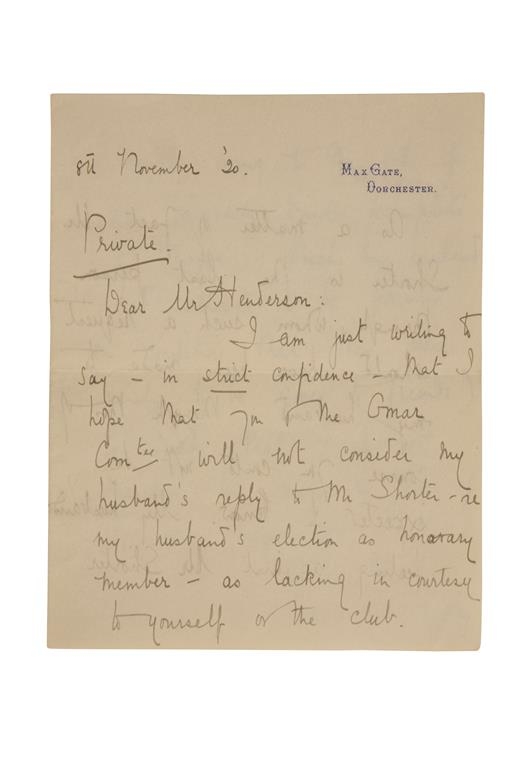 8th November '20.
MAX GATE,
DORCHESTER.
Private.
Dear Mr Henderson:
I am just writing to
say – in strict confidence – that I
hope that you & the Omar
Comtee will not consider my
husband's reply to Mr Shorter – re
my husband's election as honorary
member – as lacking in courtesy
to yourself or the club.